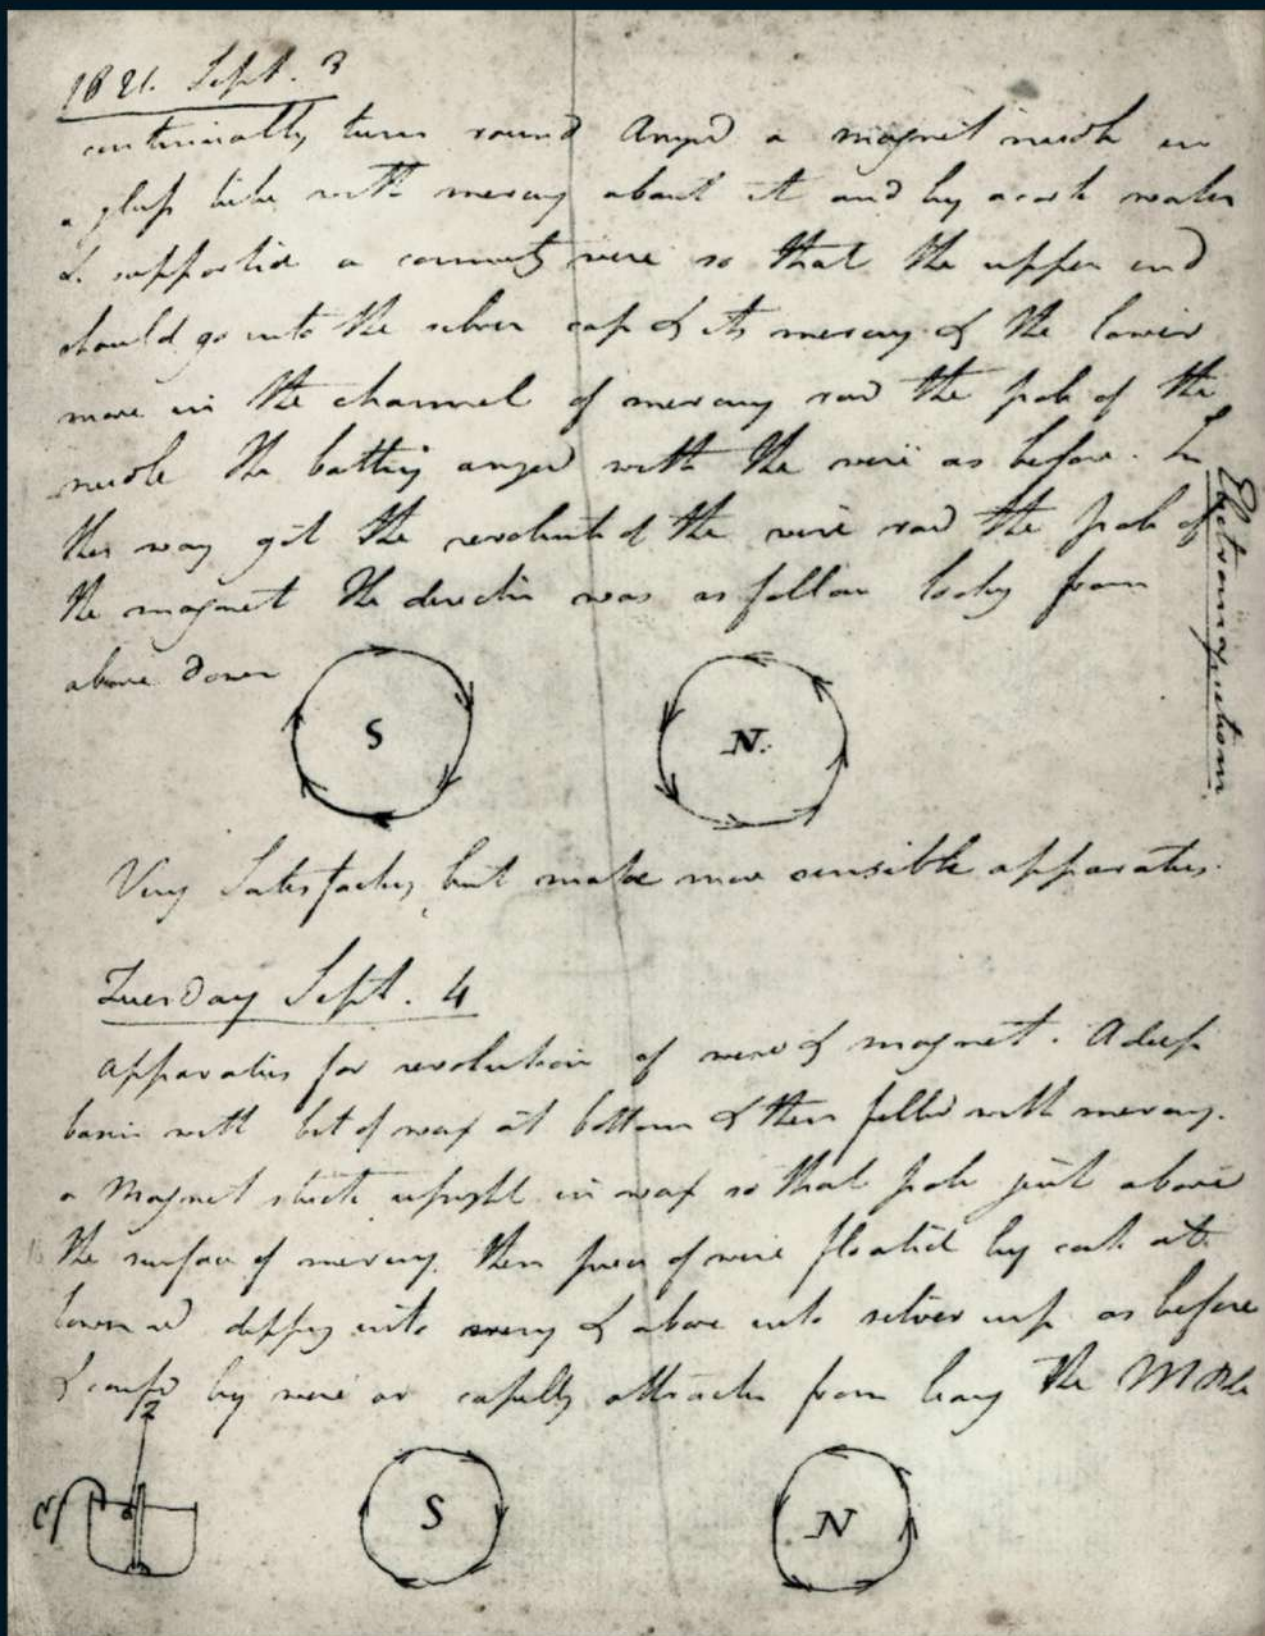 1821. Sept. 3
continually turn round Arrged a magnet needle in
a glass tube with mercury about it and by a cork water
&c supported a connectg wire so that the upper end
should go into the silver cup & its mercury & the lower
move in the channel of mercury rod the pole of the
needle The battery arrged with the wire as before. In
this way got the revolut of the wire rod the pole of
the magnet The directn was as follow lookg from
above down
S N.
Very Satisfactory but make more sensible apparatus.
Electromagnetism
Tuesday Sept. 4
Apparatus for revolution of wire & magnet. A deep
basin with bit of wax at bottom & then filled with mercury.
a Magnet stuck upright in wax so that pole just above
the surface of mercury. then piece of wire floated by cork at
lower end dippg into mercy & above into silver cup as before
& by wire or from leavg the M Pole
Z
C
S N